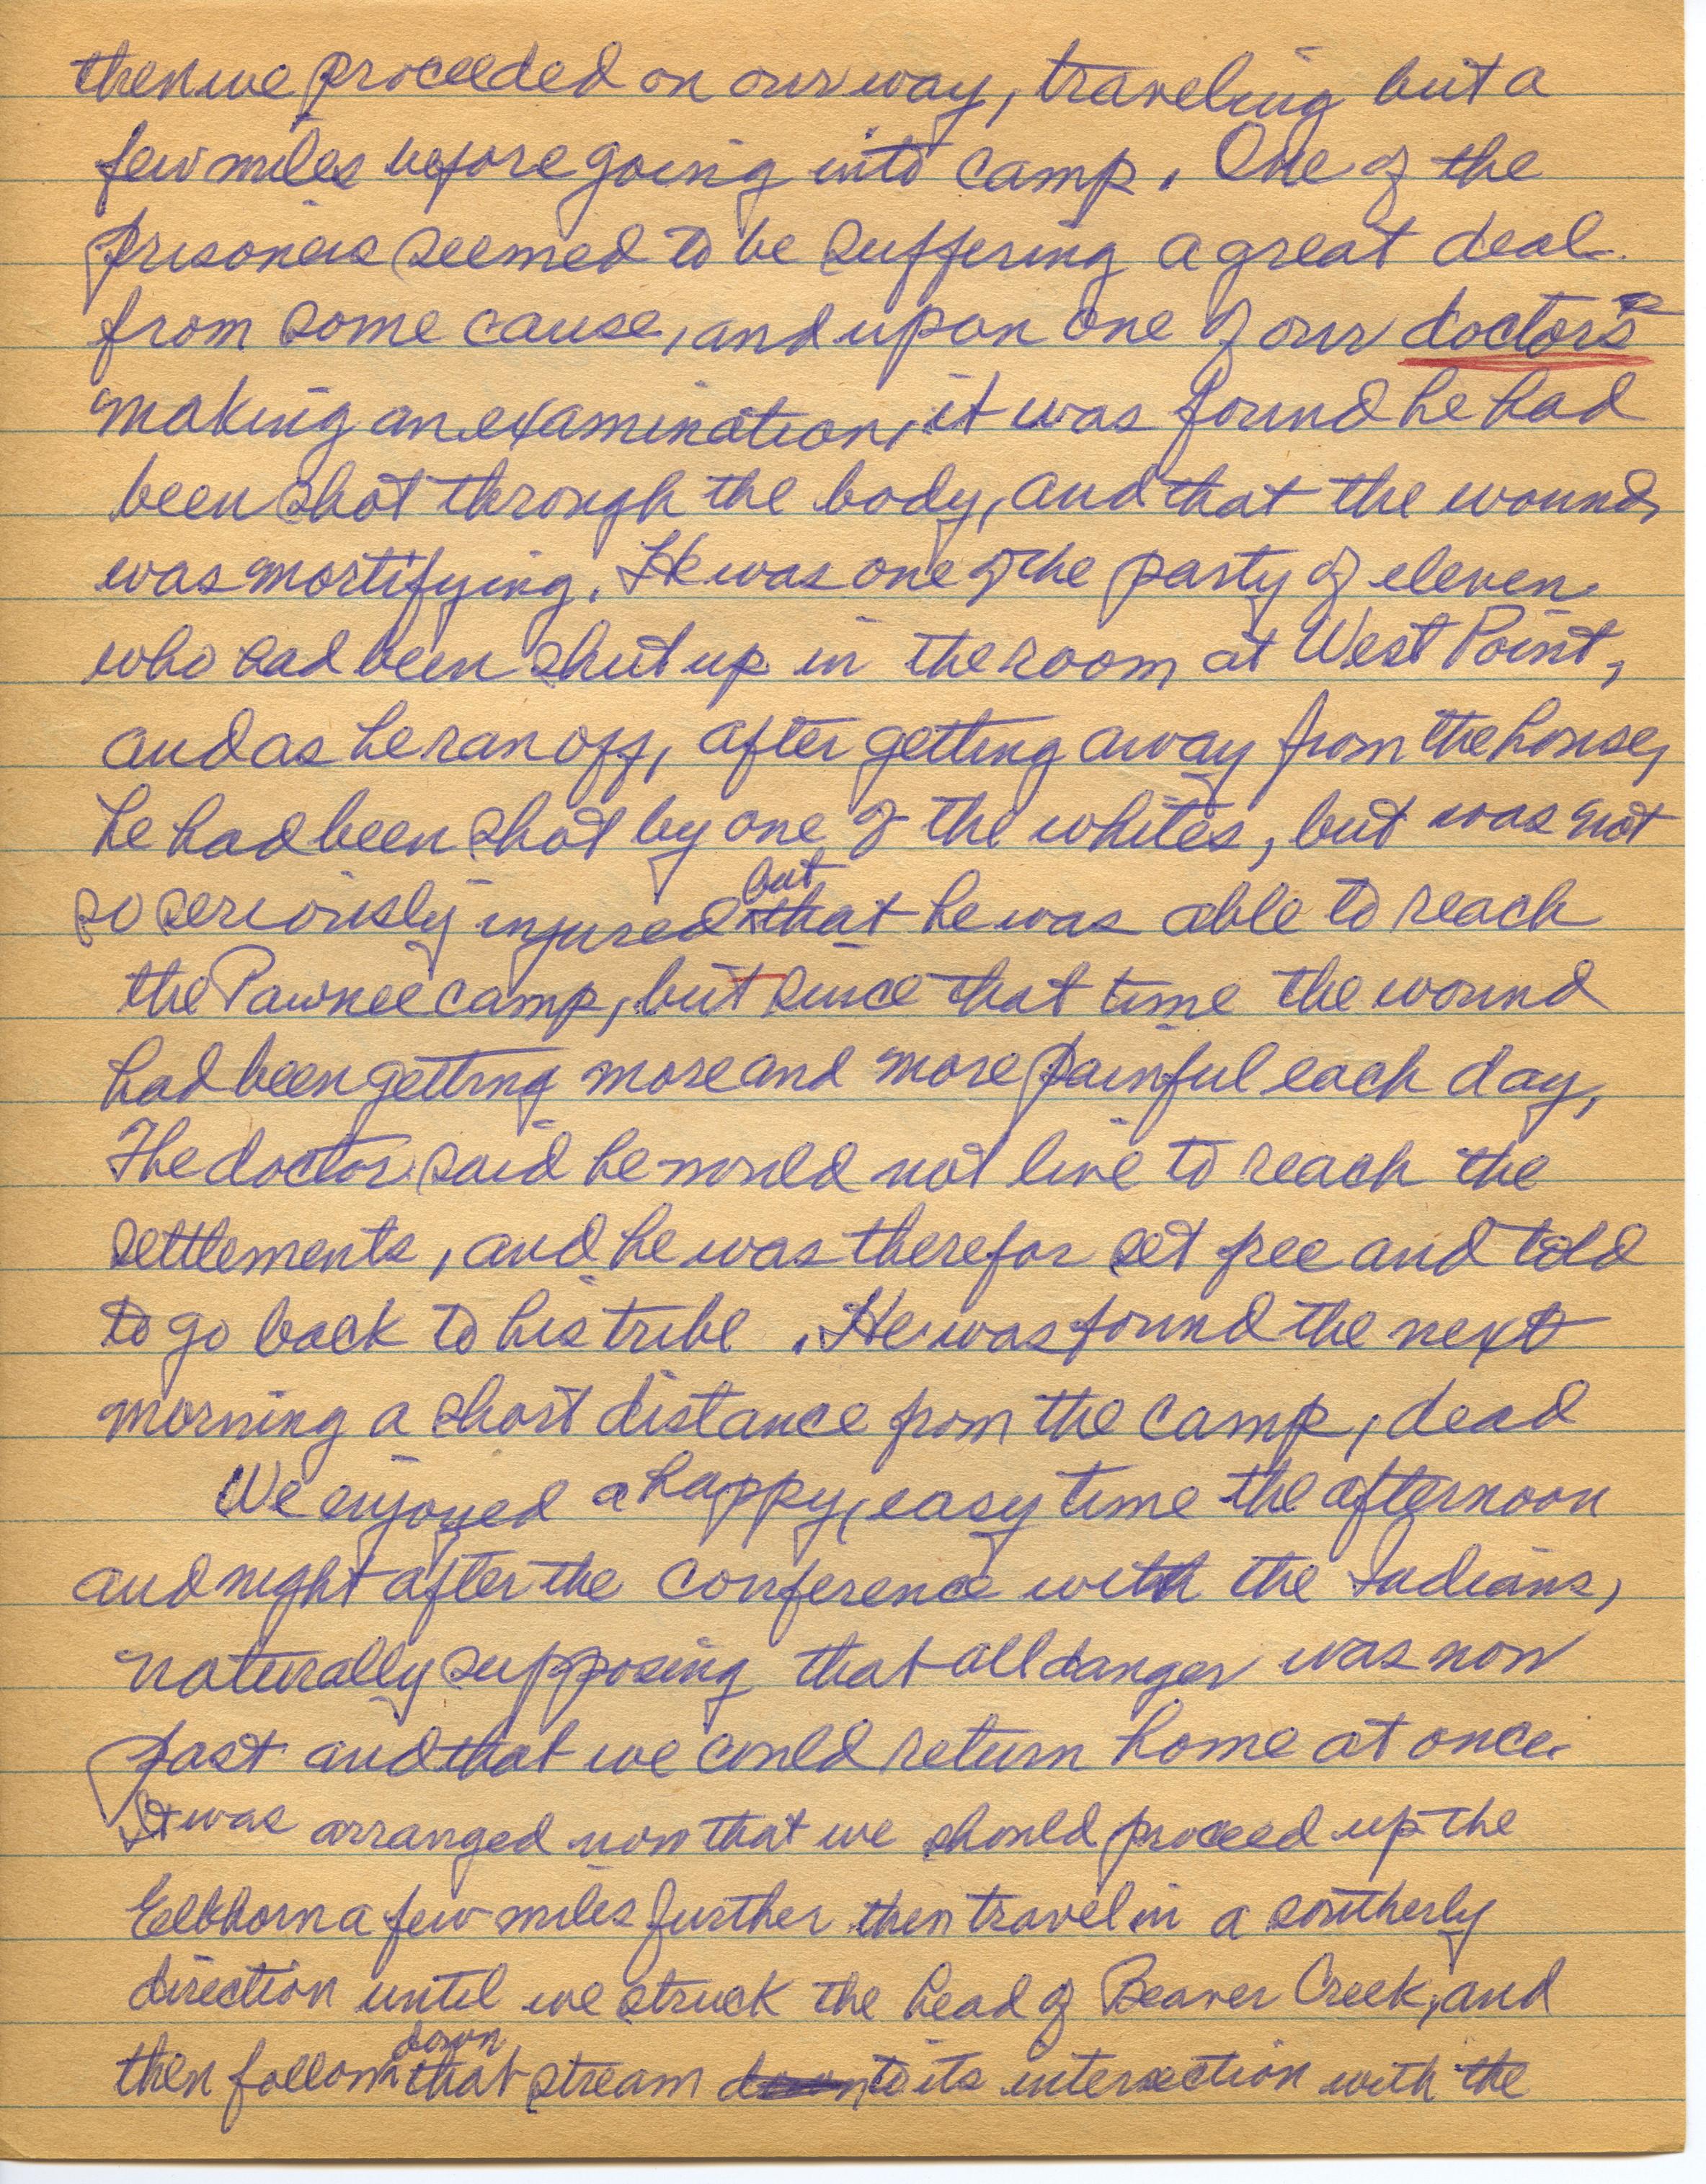 then we proceeded on our way, traveling but a
few miles before going into camp. One of the
prisoners seemed to be suffering a great deal
from some cause, and upon one of our doctors
making an examination, it was found he had
been shot through the body, and that the wound
was mortifying. He was one of the party of eleven
who had been shut up in the room at West Point,
and as he ran off, after getting away from the house,
he had been shot by one of the whites, but was not
so seriously injured but that he was able to reach
the Pawnee camp, but since that time the wound
had been getting more and more painful each day,
The doctor said he would not live to reach the
settlements, and he was therefor set free and told
to go back to his tribe. He was found the next
morning a short distance from the camp, dead
We enjoyed a happy, easy time the afternoon
and night after the conference with the Indians,
naturally supposing that all danger was now
past and that we could return home at once.
It was arranged now that we should proceed up the
Elkhorn a few miles further then travel in a southerly
direction until we struck the head of Beaver Creek, and
then follow down that stream down to its intersection with the